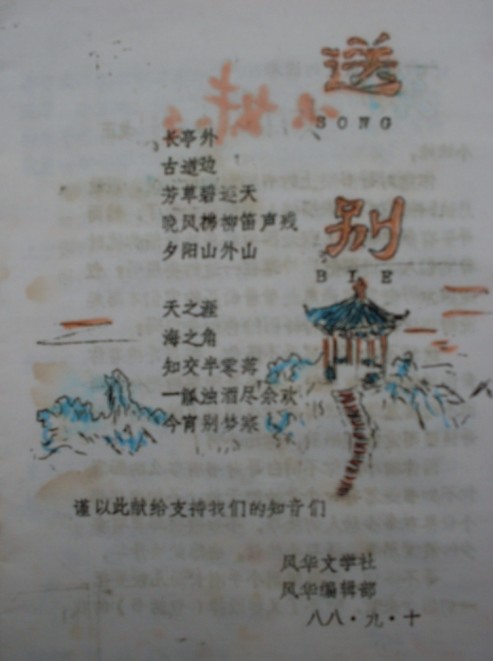 送
SONG
别
BIE
长亭外
古道边
芳草碧连天
晚风拂柳笛声残
夕阳山外山
天之涯
海之角
知交半零落
一瓢浊酒尽余欢
今宵别梦寒
谨以此献给支持我们的知音们
风华文学社
风华编辑部
八八·九·十